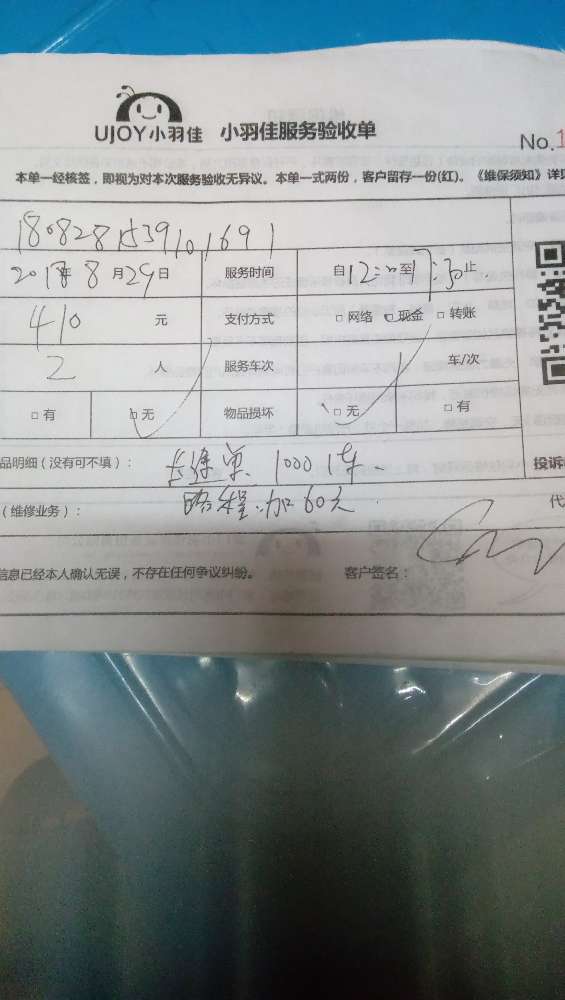 UJOY小羽佳 小羽佳服务验收单
No.1
本单一经核签，即视为对本次服务验收无异议。本单一式两份，客户留存一份(红)。《维保须知》详见
1808281539101691
2018年8月29日 服务时间 自12:00至17:30止
410 元 支付方式 □ 网络 □ 现金 □ 转账
2 人 服务车次 车/次
□ 有 □ 无 物品损坏 □ 无 □ 有
品明细（没有可不填）： 1000 1
投诉
（维修业务）： 路程.加60元
代
信息已经本人确认无误，不存在任何争议纠纷。 客户签名：